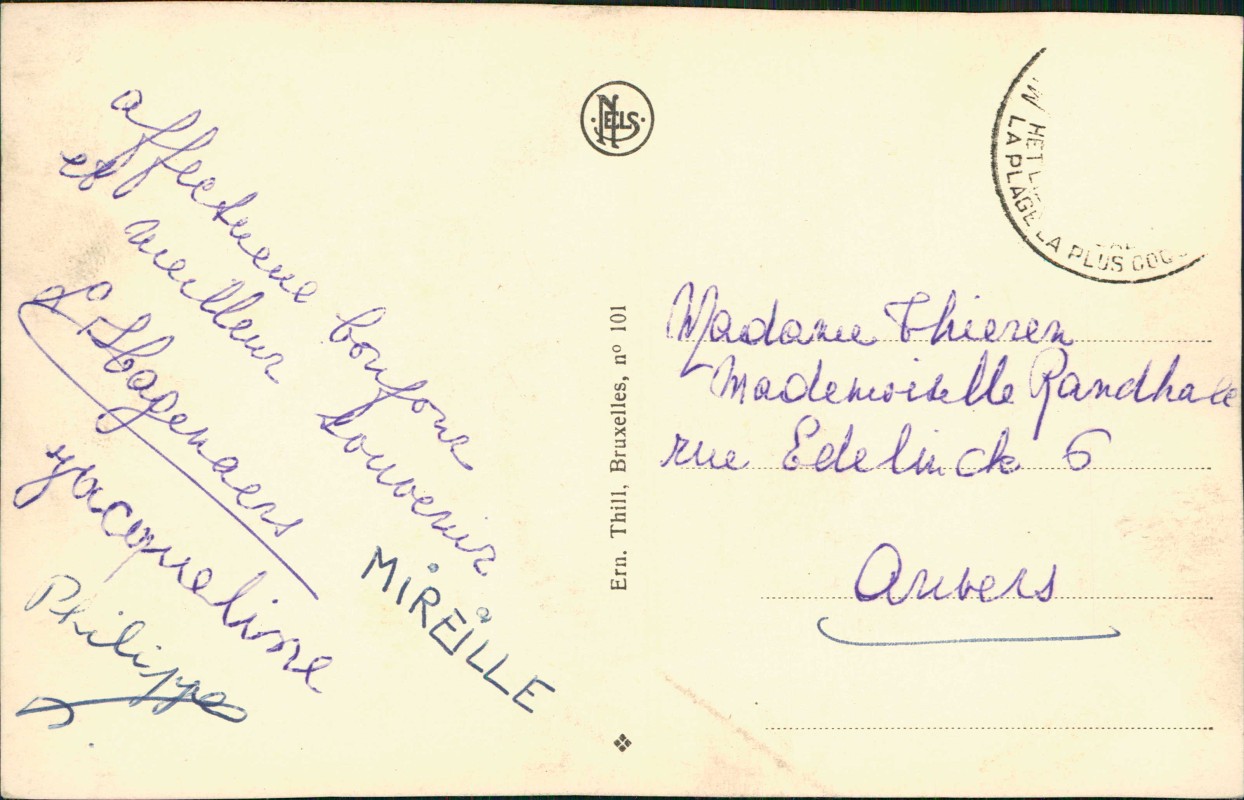 affectueux bonjour
et meilleur souvenir
Jacqueline
Philippe
MIREILLE
NELS
Ern. Thill, Bruxelles, nº 101
HET
LA PLAGE LA PLUS COQ
Madame Thieren
Mademoiselle Randhale
rue Edelinck 6
Anvers